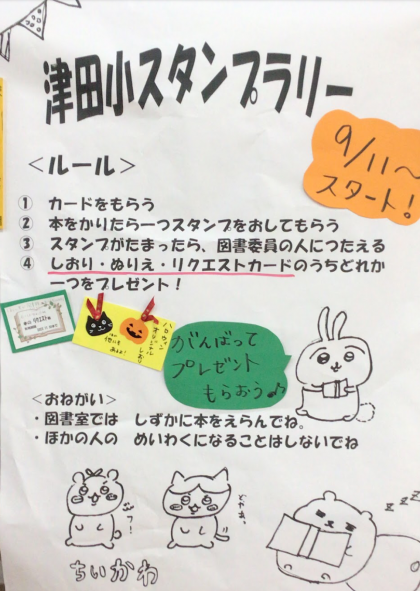 津田小スタンプラリー
9/11〜
スタート!
<ルール>
① カードをもらう
② 本をかりたら一つスタンプをおしてもらう
③ スタンプがたまったら、図書委員の人につたえる
④ しおり・ぬりえ・リクエストカードのうちどれか
一つをプレゼント!
ハロウィン
オリジナル
しおり
他にも
あるよ!
がんばって
プレゼント
もらおう♪
<おねがい>
・図書室では しずかに本をえらんでね。
・ほかの人の めいわくになることはしないでね
zzz
ちいかわ